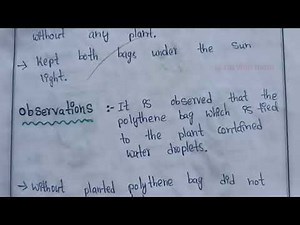 without any plant.
→ Kept both bags under the sun
light.
Observations :- It is observed that the
polythene bag which is tied
to the plant contained
water droplets.
→ Without planted polythene bag did not